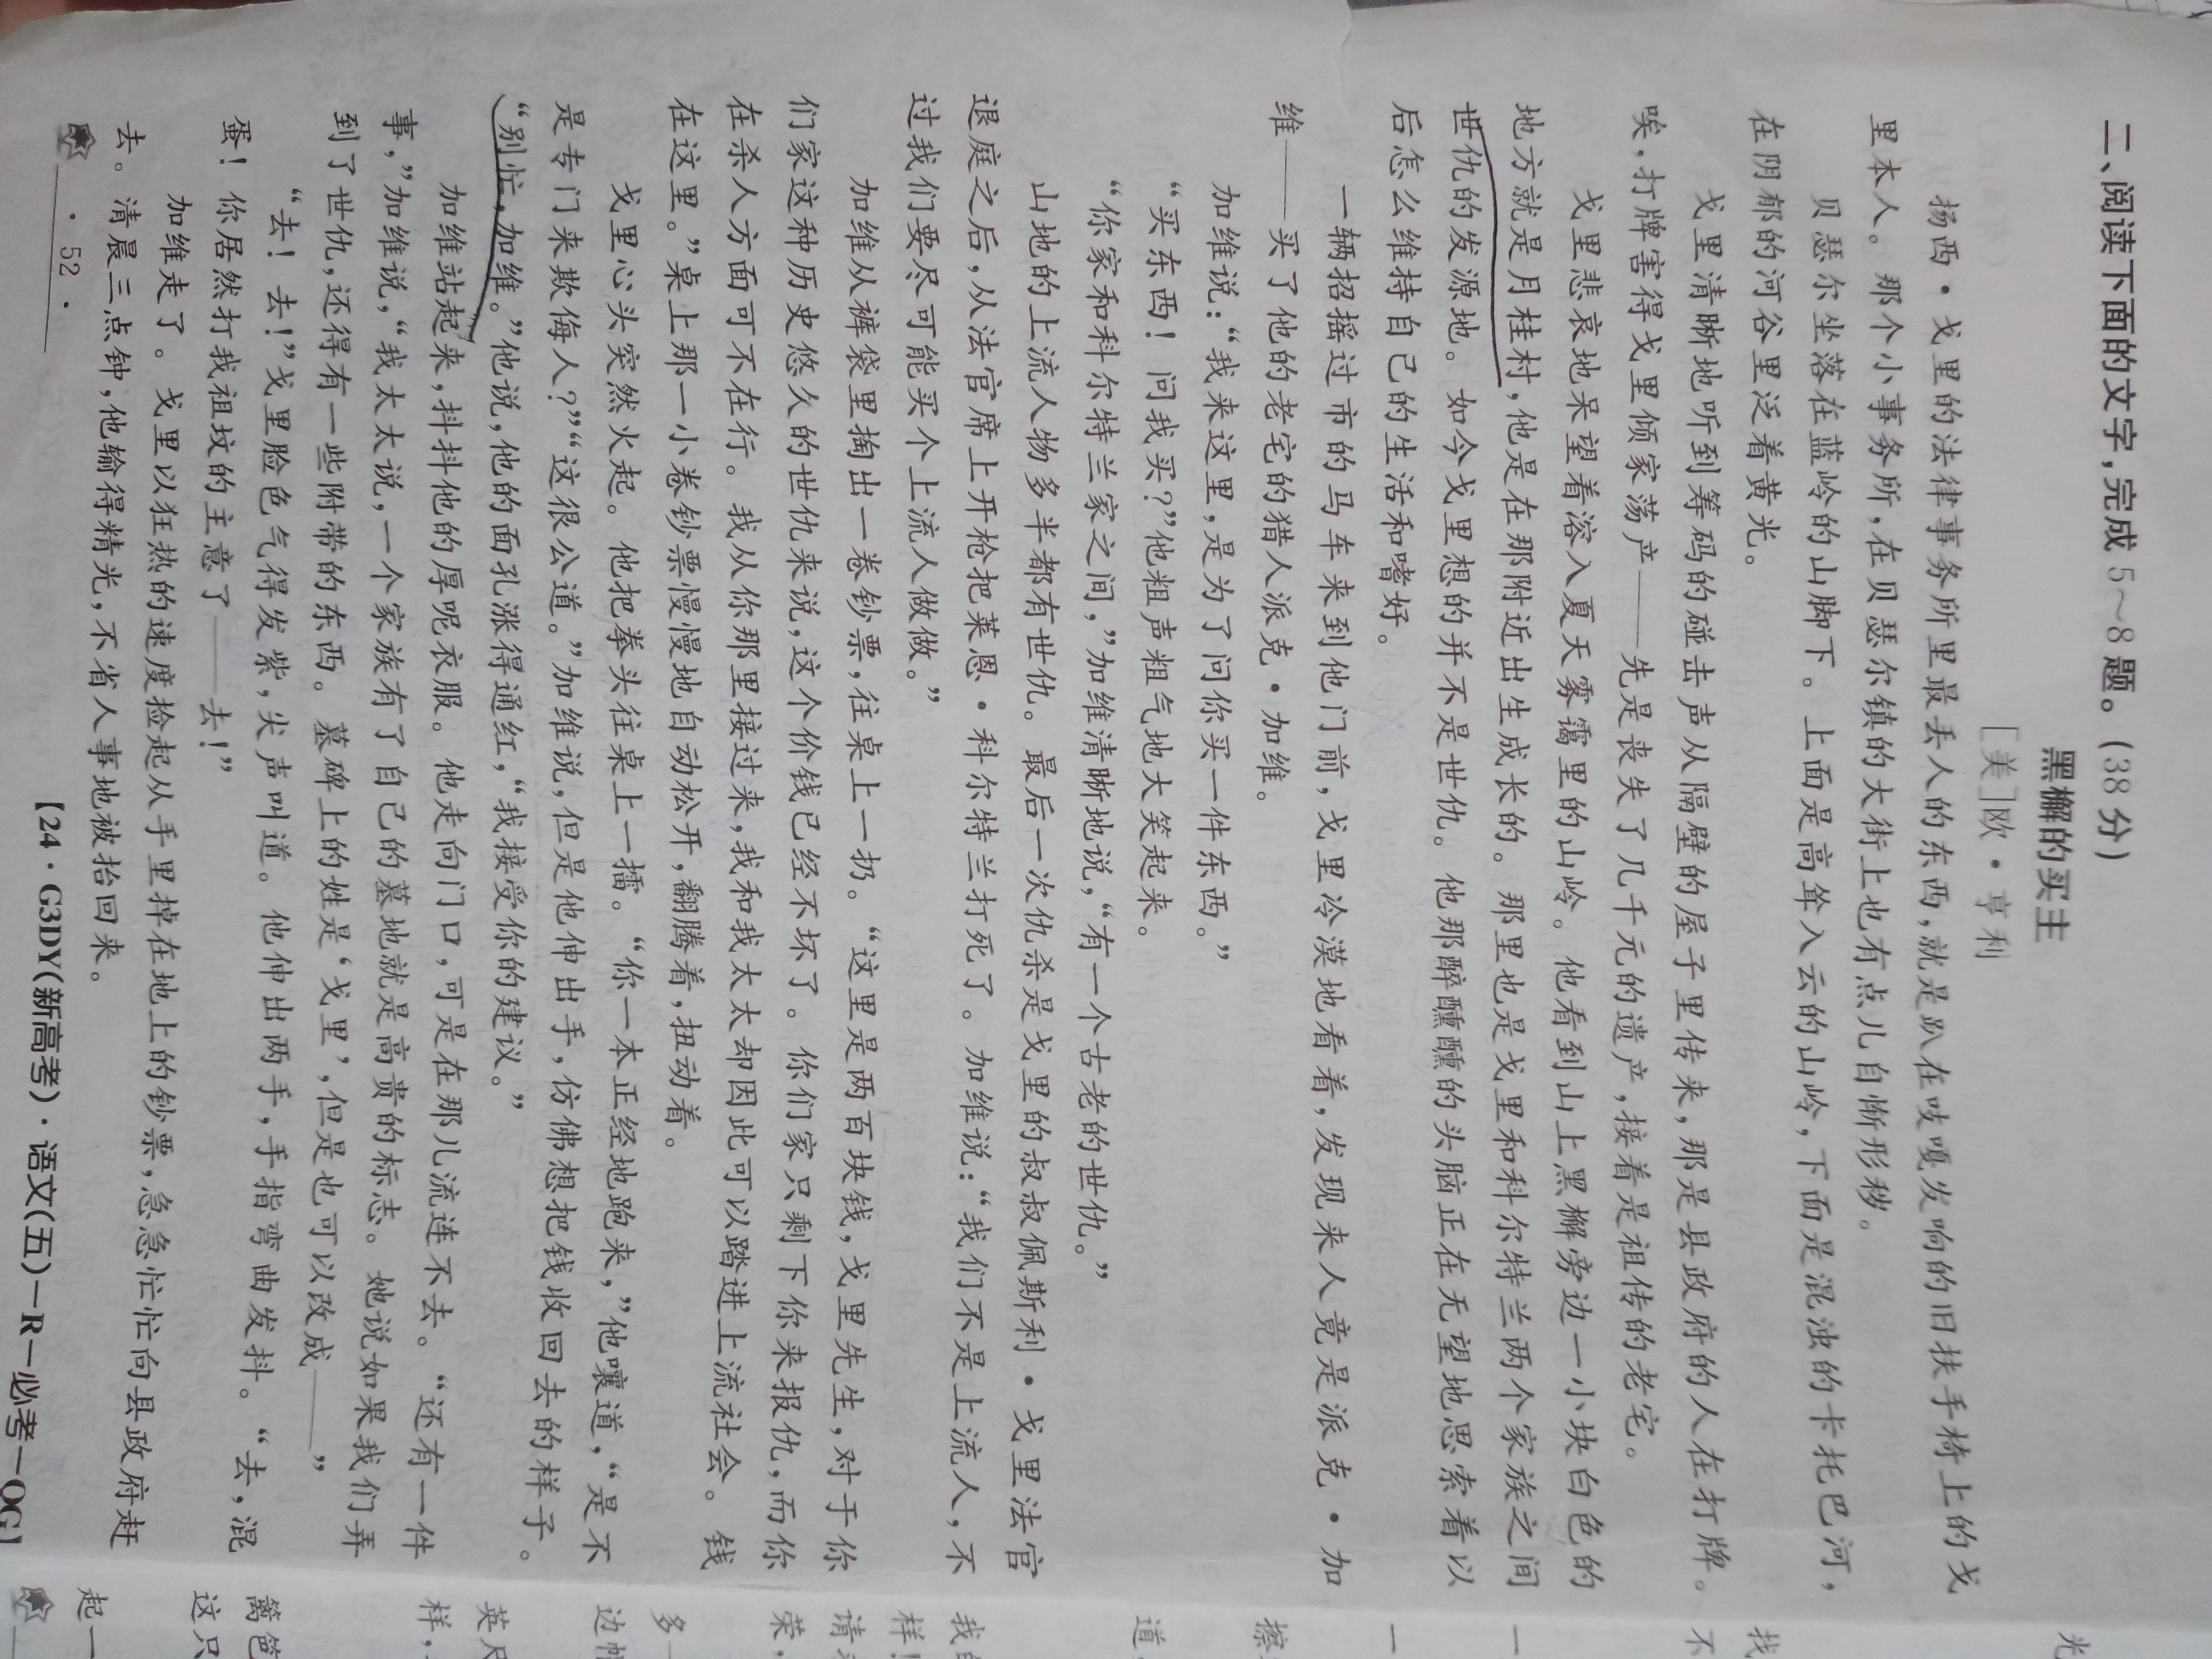 二、阅读下面的文字,完成5～8题。(38分)
黑槲的买主
[美]欧·亨利
扬西·戈里的法律事务所里最丢人的东西,就是趴在吱嘎发响的旧扶手椅上的戈
里本人。那个小事务所,在贝瑟尔镇的大街上也有点儿自惭形秽。
贝瑟尔坐落在蓝岭的山脚下。上面是高耸入云的山岭,下面是混浊的卡托巴河,
在阴郁的河谷里泛着黄光。
戈里清晰地听到筹码的碰击声从隔壁的屋子里传来,那是县政府的人在打牌。
唉,打牌害得戈里倾家荡产——先是丧失了几千元的遗产,接着是祖传的老宅。
戈里悲哀地呆望着溶入夏天雾霭里的山岭。他看到山上黑槲旁边一小块白色的
地方就是月桂村,他是在那附近出生成长的。那里也是戈里和科尔特兰两个家族之间
世仇的发源地。如今戈里想的并不是世仇。他那醉醺醺的头脑正在无望地思索着以
后怎么维持自己的生活和嗜好。
一辆招摇过市的马车来到他门前,戈里冷漠地看着,发现来人竟是派克·加
维——买了他的老宅的猎人派克·加维。
加维说:“我来这里,是为了问你买一件东西。”
“买东西！问我买?”他粗声粗气地大笑起来。
“你家和科尔特兰家之间,”加维清晰地说,“有一个古老的世仇。”
山地的上流人物多半都有世仇。最后一次仇杀是戈里的叔叔佩斯利·戈里法官
退庭之后,从法官席上开枪把莱恩·科尔特兰打死了。加维说:“我们不是上流人,不
过我们要尽可能买个上流人做做。”
加维从裤袋里掏出一卷钞票,往桌上一扔。“这里是两百块钱,戈里先生,对于你
们家这种历史悠久的世仇来说,这个价钱已经不坏了。你们家只剩下你来报仇,而你
在杀人方面可不在行。我从你那里接过来,我和我太太却因此可以踏进上流社会。钱
在这里。”桌上那一小卷钞票慢慢地自动松开,翻腾着,扭动着。
戈里心头突然火起。他把拳头往桌上一擂。“你一本正经地跑来,”他嚷道,“是不
是专门来欺侮人?”“这很公道。”加维说,但是他伸出手,仿佛想把钱收回去的样子。
“别忙,加维。”他说,他的面孔涨得通红,“我接受你的建议。”
加维站起来,抖抖他的厚呢衣服。他走向门口,可是在那儿流连不去。“还有一件
事,”加维说,“我太太说,一个家族有了自己的墓地就是高贵的标志。她说如果我们弄
到了世仇,还得有一些附带的东西。墓碑上的姓是‘戈里’,但是也可以改成——”
“去！去！”戈里脸色气得发紫,尖声叫道。他伸出两手,手指弯曲发抖。“去,混
蛋！你居然打我祖坟的主意了——去！”
加维走了。戈里以狂热的速度捡起从手里掉在地上的钞票,急急忙忙向县政府赶
去。清晨三点钟,他输得精光,不省人事地被抬回来。
·52·
【24·G3DY(新高考)·语文(五)—R—必考—QG】
光
找
不
一
一
擦
道
我
样！
请
荣,
多
边
英尺
样,
篱笆
这只
起一